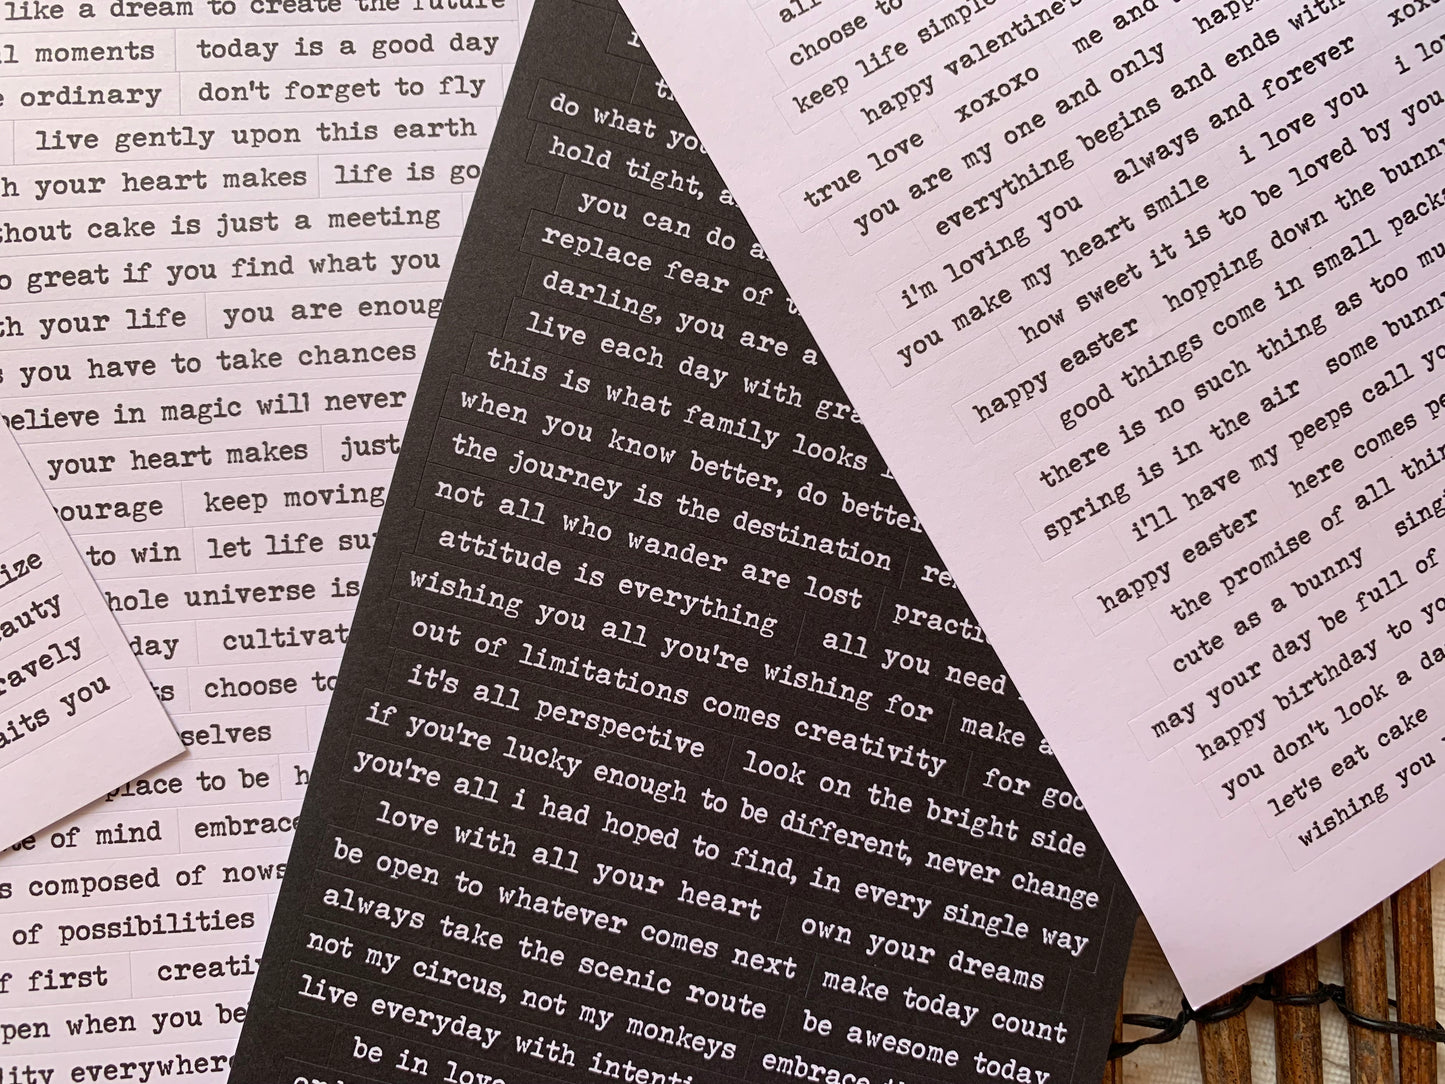 like a dream to create the future
moments today is a good day
ordinary don't forget to fly
live gently upon this earth
your heart makes life is
cake is just a meeting
great if you find what you
your life you are
you have to take chances
in magic will never
your heart makes just
keep moving
to win let life
universe is
choose
to be
of mind
composed of
of possibilities
first
when you
do what
hold tight,
you can do
replace fear of
darling, you are a
live each day with
this is what family looks
when you know better, do better
the journey is the destination
not all who wander are lost
attitude is everything all you need
wishing you all you're wishing for make
out of limitations comes creativity for
it's all perspective look on the bright side
if you're lucky enough to be different, never change
you're all i had hoped to find, in every single way
love with all your heart own your dreams
be open to whatever comes next make today count
always take the scenic route be awesome today
not my circus, not my monkeys embrace
live everyday with
be in
choose to
keep life
happy valentine's
true love xoxoxo me and
you are my one and only
everything begins and ends with
i'm loving you always and forever
you make my heart smile i love you i
how sweet it is to be loved by you
happy easter hopping down the bunny
good things come in small
there is no such thing as too
spring is in the air some
i'll have my peeps call
happy easter here comes
the promise of all
cute as a bunny
may your day be full of
happy birthday to
you don't look a
let's eat cake
wishing you
you